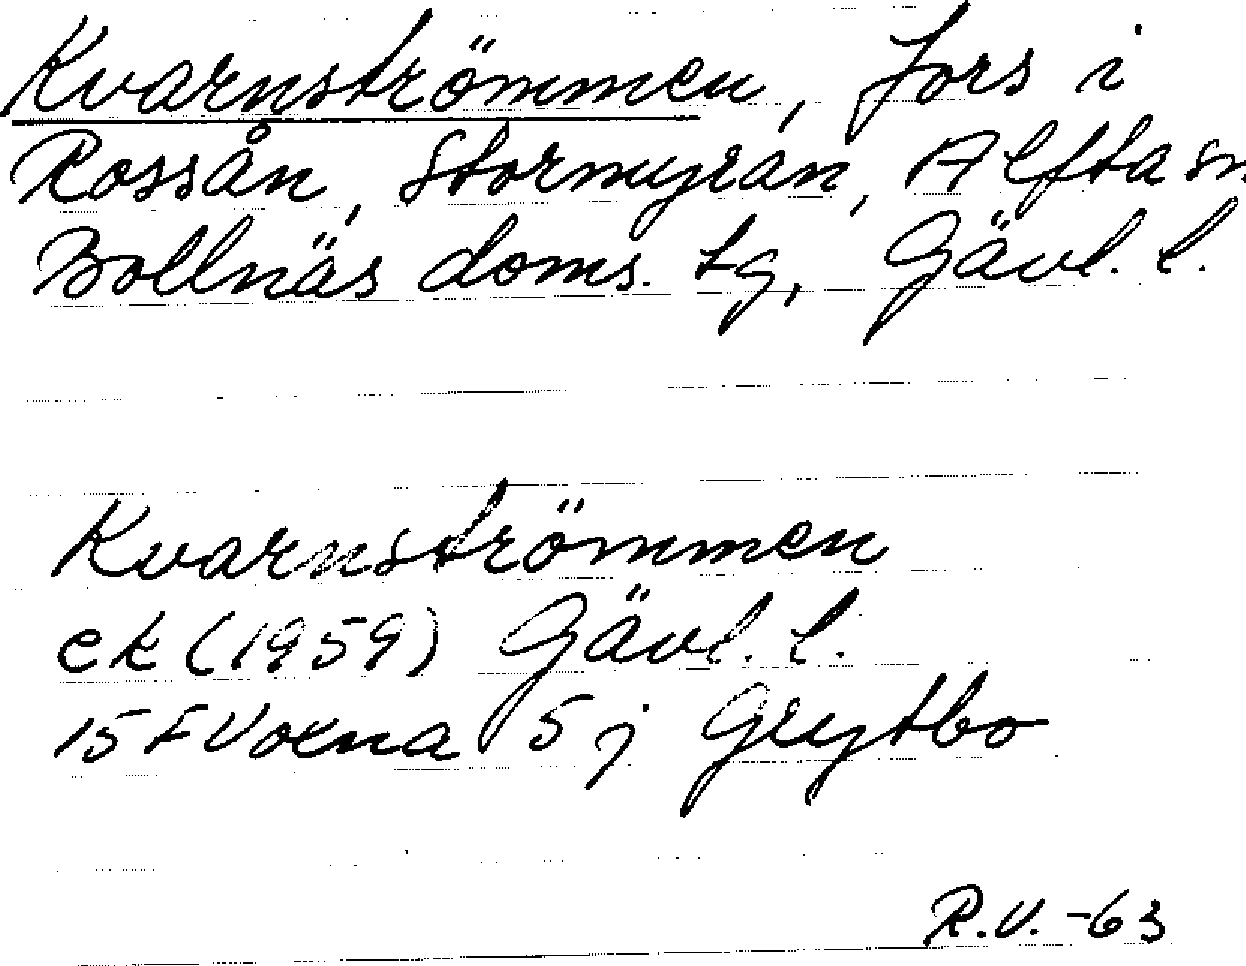 Kvarnströmmen, fors i
Rossån, Stormyran, Alfta sn
Bollnäs doms. tg, Gävl. l.
Kvarnströmmen
ek (1959) Gävl. l.
15 F Voxna 5 j Grytbo
R.V. -63